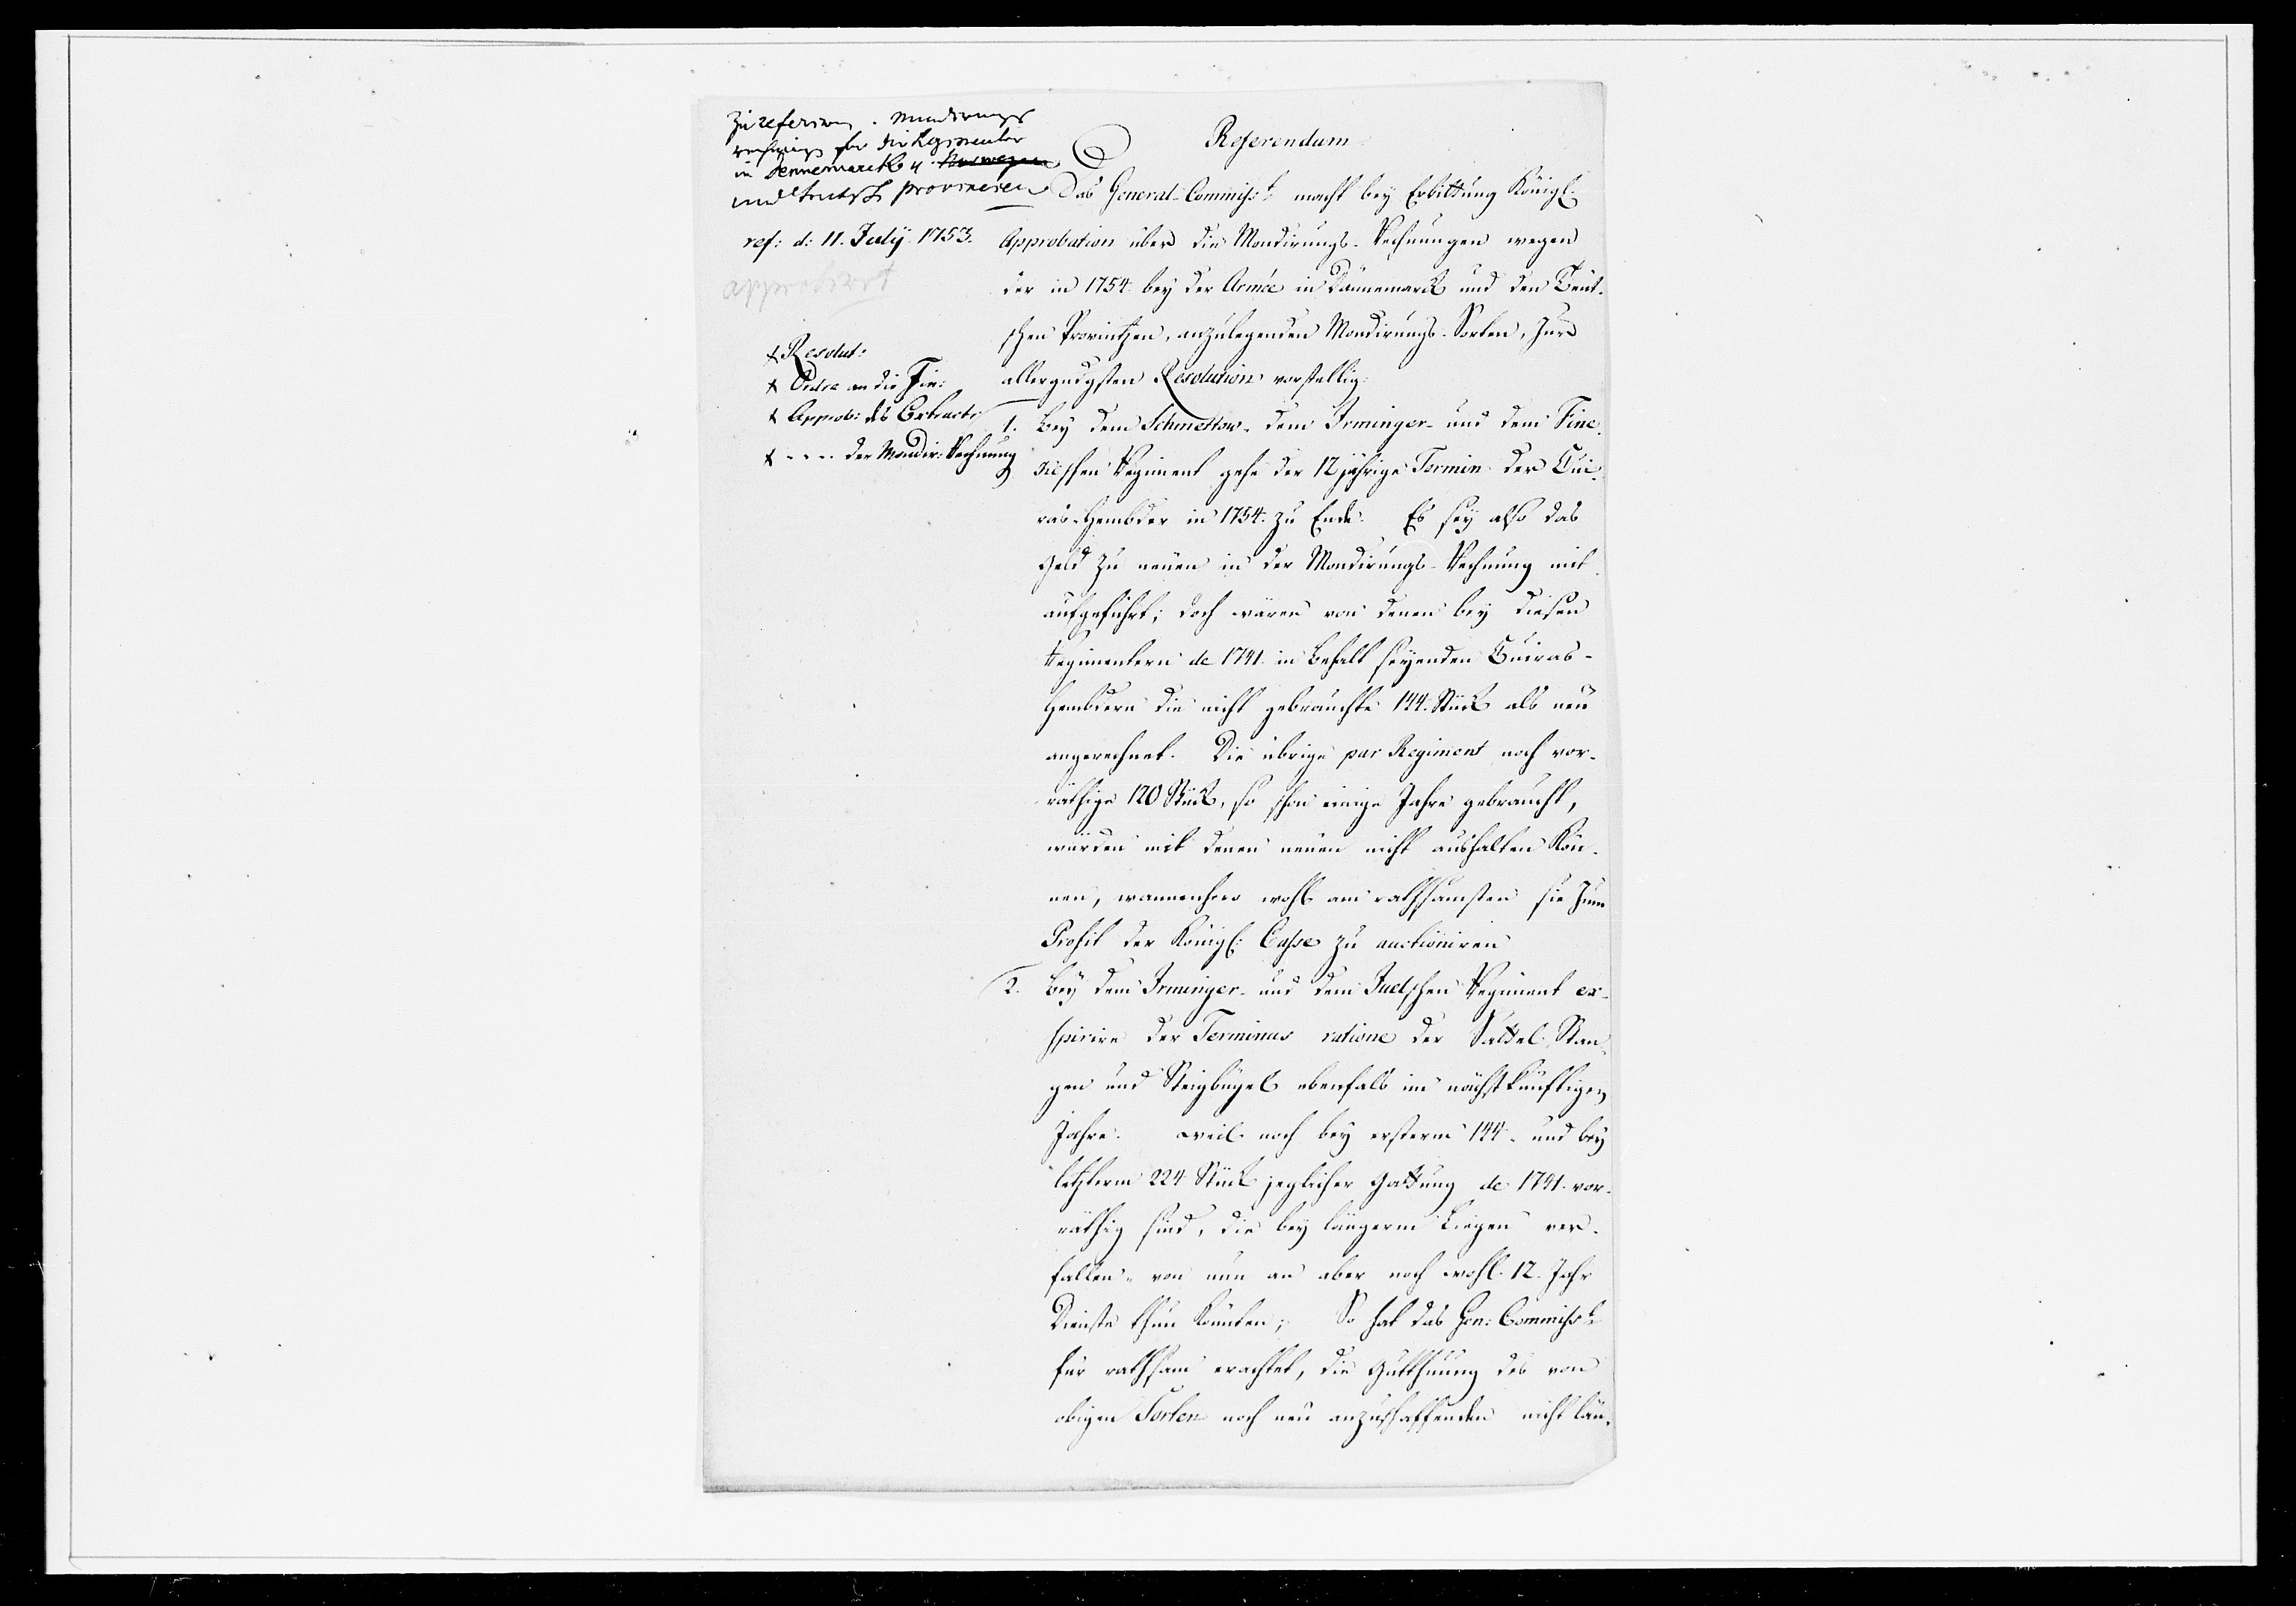 Zu referiren. Mundirungs
rechnungs for die Regimenter
in Dennemarck u Norwegen
und teutsche provincien
ref: d: 11. July. 1753.
approbirt
x Resolut:
x Ordre an die Fin:
x Approb: des Extracts
x - - - - der Mondir: Rechnung
Referendum
Das General-Commiss:t macht bey Erbittung Königl.
Approbation über die Mondirungs-Rechnungen wegen
der in 1754. bey der Armée in Dännemarck und den Teut-
schen Provintzen, anzulegenden Mondirungs-Sorten, zur
allergndgsten Resolution vorstellig:
1. Bey dem Schmettow- dem Irminger- und dem Fine-
ckeschen Regiment gehe der 12 jährige Termin der Cui-
ras-Hembder in 1754. zu Ende. Es sey also das
Geld zu neuen in der Mondirungs-Rechnung mit
aufgeführt; doch wären von denen bey diesen
Regimentern de 1741. in Behalt seyenden Cuiras-
Hembdern die nicht gebrauchte 144. Stück als neu
angerechnet. Die übrige par Regiment noch vor-
räthige 120 Stück, so schon einige Jahre gebraucht,
würden mit denen neuen nicht aushalten kön-
nen, wannenhero wohl am rathsamsten sie zum
Profit der Königl: Casse zu auctioniren
2. Bey dem Irminger- und dem Juelschen Regiment ex-
spirire der Terminus ratione der Sattel, Stan-
gen und Steigbügel ebenfals im nächstkünftigen
Jahre. weil noch bey ersterm 144. und bey
letzterm 224 Stück jeglicher Gattung de 1741. vor-
räthig sind, die bey längerm Liegen ver-
fallen- von nun an aber noch wohl 12. Jahr
Dienste thun könnten; So hat das Gen: Commiss:t
für rathsam erachtet, die Gutthuung des von
obigen Sorten noch neu anzuschaffenden nicht län-